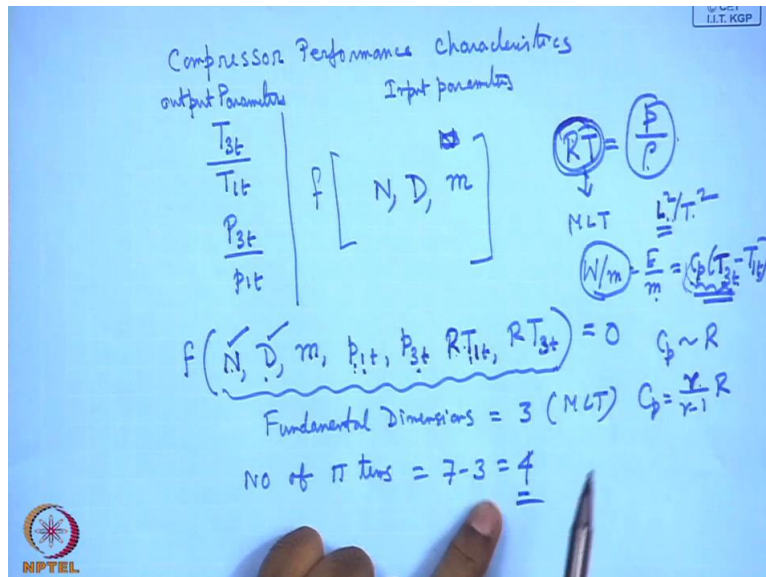 © CET
I.I.T. KGP
Compressor Performance Characteristics
output Parameters Input parameters
T3t / T1t
P3t / P1t
f [ N, D, m ]
RT = p / ρ
MLT L²/T²
W/m = E/m = Cp(T3t - T1t)
f(N, D, m, p1t, p3t RT1t, RT3t) = 0 Cp ~ R
Fundamental Dimensions = 3 (MLT) Cp = γ/γ-1 R
NO of π tems = 7-3 = 4
NPTEL